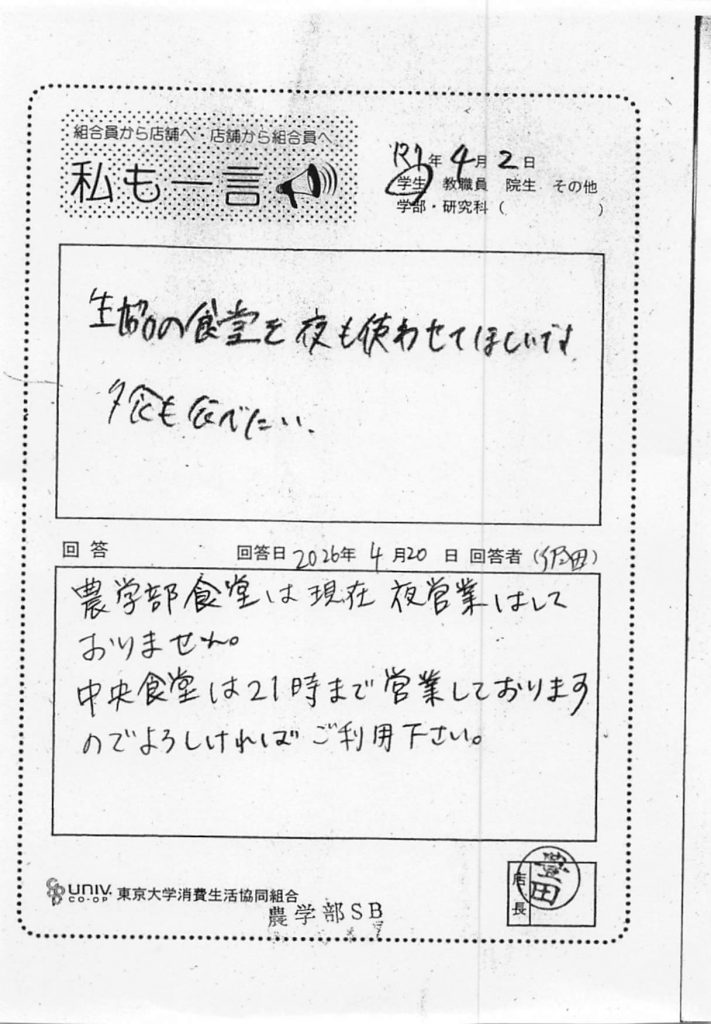 組合員から店舗へ・店舗から組合員へ
私も一言
年 4月2日
学生 教職員 院生 その他
学部・研究科（ ）
生協の食堂を夜も使わせてほしいです
夕食も食べたい.
回答 回答日 2026年 4月20日 回答者（ 田）
農学部食堂は現在 夜営業はして
おりません。
中央食堂は21時まで営業しております
のでよろしければ ご利用下さい。
店長
豊田
UNIV. CO-OP 東京大学消費生活協同組合
農学部SB